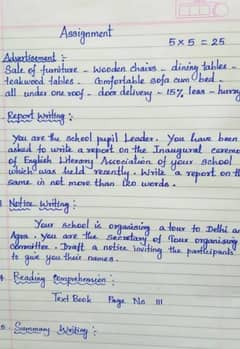 Assignment
5 x 5 = 25
Advertisement :-
Sale of furniture - Wooden chairs - dining tables -
teakwood tables - Comfortable sofa cum bed -
all under one roof - door delivery - 15% less - hurry
Report Writing :-
You are the school pupil leader. You have been
asked to write a report on the Inaugural ceremo
of English Literary Association of your school
which was held recently. Write a report on th
same in not more than 120 words.
Notice Writing :
Your school is organising a tour to Delhi an
Agra. You are the secretary of Tour organising
Committee. Draft a notice inviting the participants
to give you their names.
4. Reading Comprehension :
Text Book Page No 111
5. Summary Writing :